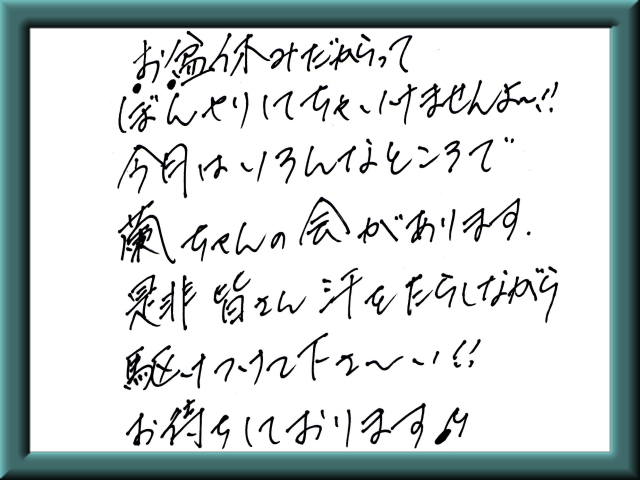 お盆休みだからって
ぼんやりしてちゃいけませんよ〜!!
今月はいろんなところで
蘭ちゃんの会があります.
是非皆さん汗をたらしながら
駆けつけて下さ〜い!!
お待ちしております♪